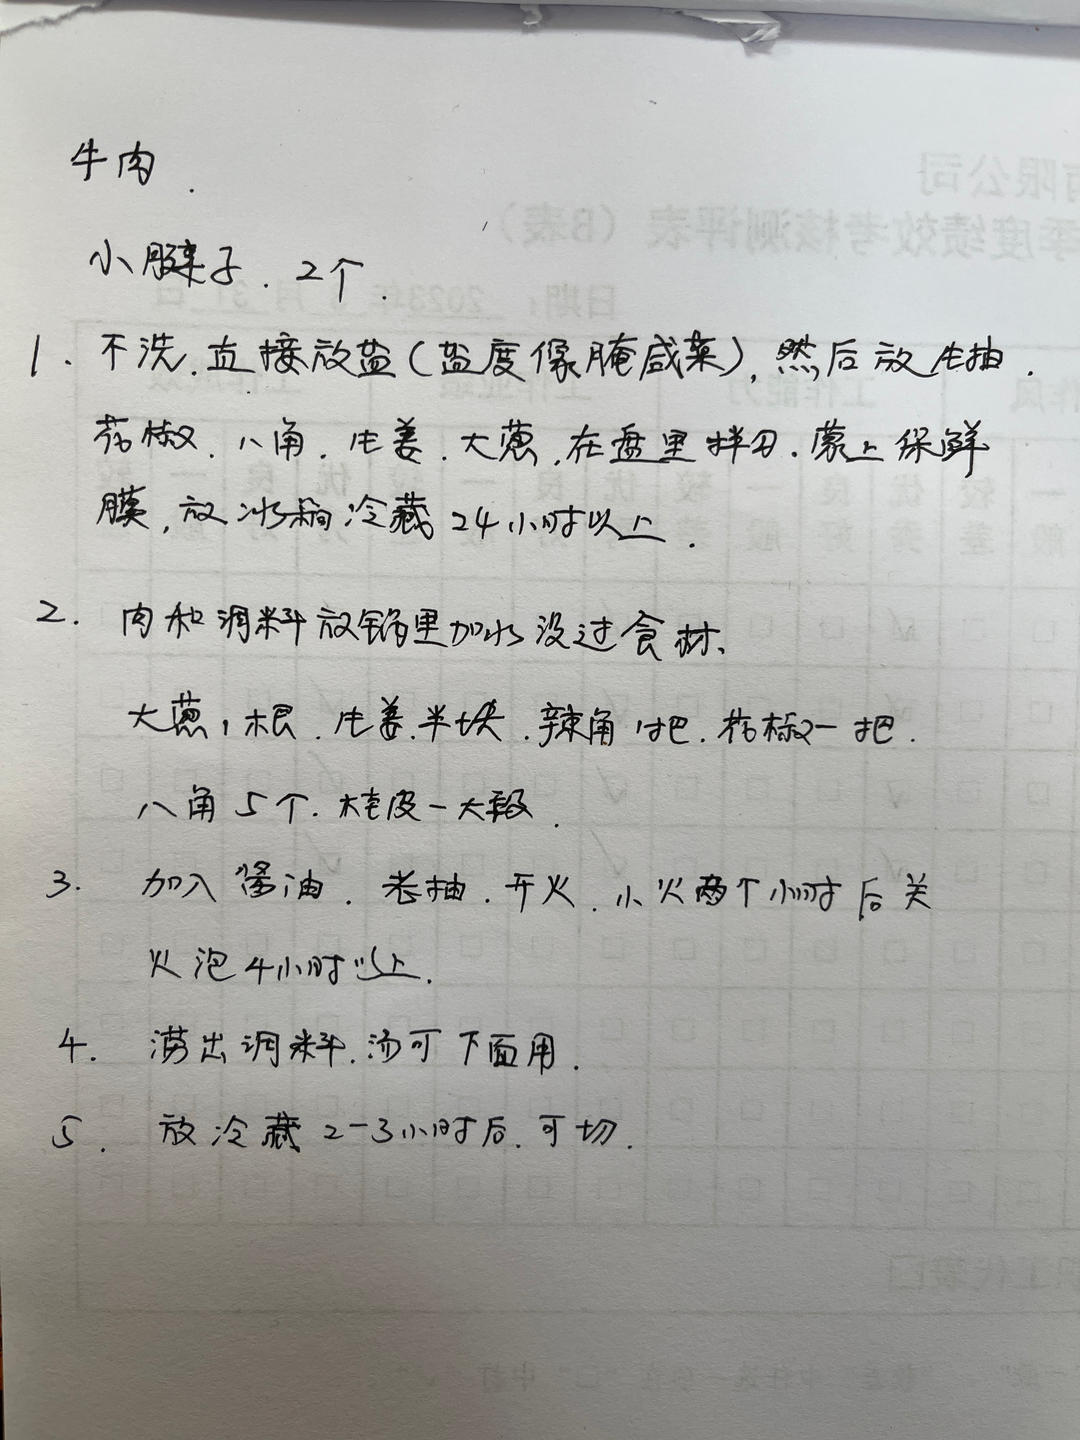 牛肉.
小腱子. 2个.
1. 不洗.直接放盐(盐度像腌咸菜),然后放生抽.
花椒.八角.生姜.大葱,在盘里拌匀.蒙上保鲜
膜,放冰箱冷藏24小时以上.
2. 肉和调料放锅里加水没过食材、
大葱1根.生姜半块.辣角1把.花椒一把.
八角5个.桂皮一大段.
3. 加入酱油.老抽.开火.小火两个小时后关
火泡4小时以上.
4. 捞出调料.汤可下面用.
5. 放冷藏2-3小时后.可切.
有限公司
季度绩效考核测评表(B表)
日期:2023年3月31日